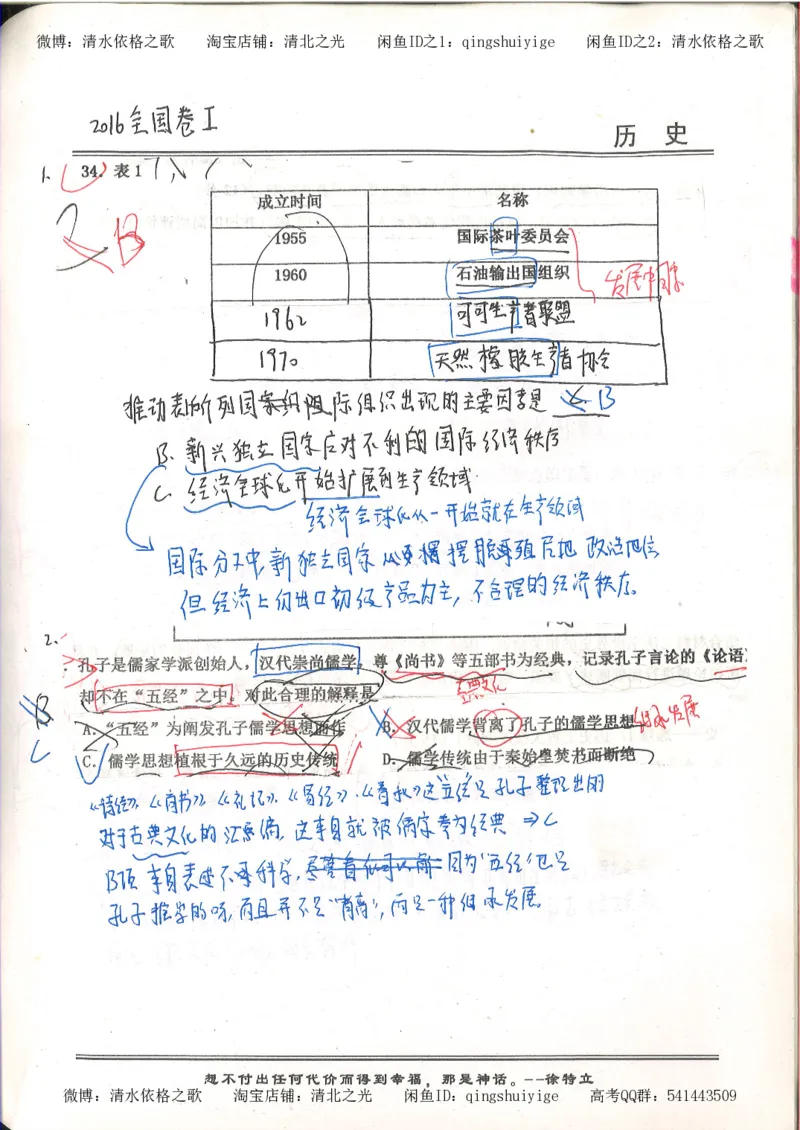 微博：清水依格之歌 淘宝店铺：清北之光 闲鱼ID之1：qingshuiyige 闲鱼ID之2：清水依格之歌
2016全国卷I
历 史
1. 34. 表1
成立时间 名称
1955 国际茶叶委员会
1960 石油输出国组织
发展中国家
1962 可可生产者联盟
1970 天然橡胶生产者协会
B
推动表的所列国际组织出现的主要因素是 B
B. 新兴独立国家应对不利的国际经济秩序
C. 经济全球化开始扩展到生产领域
经济全球化从一开始就在生产领域
国际分工中,新独立国家 摆脱殖民地政治地位
但经济上仍出口初级产品为主，不合理的经济秩序。
2.
孔子是儒家学派创始人，汉代崇尚儒学，尊《尚书》等五部书为经典，记录孔子言论的《论语》
却不在“五经”之中。对此合理的解释是
古典文化
A. “五经”为阐发孔子儒学思想而作 B. 汉代儒学背离了孔子的儒学思想 继承发展
B
C
C. 儒学思想植根于久远的历史传统 D. 儒学传统由于秦始皇焚书而断绝
《诗经》、《尚书》、《礼记》、《易经》、《春秋》这五经是孔子整理出的
对于古典文化的汇总编，这本身就被儒家奉为经典 ⇒ C
B项 本身表述不再科学, 因为‘五经’也是
孔子推崇的呀, 而且并不是‘背离’, 而是一种继承发展。
想不付出任何代价而得到幸福，那是神话。--徐特立
微博：清水依格之歌 淘宝店铺：清北之光 闲鱼ID：qingshuiyige 高考QQ群：541443509